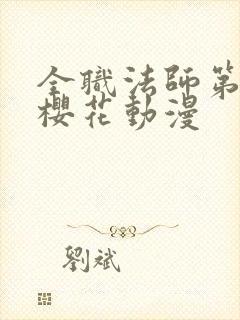 全職法師第
櫻花動漫
劉斌